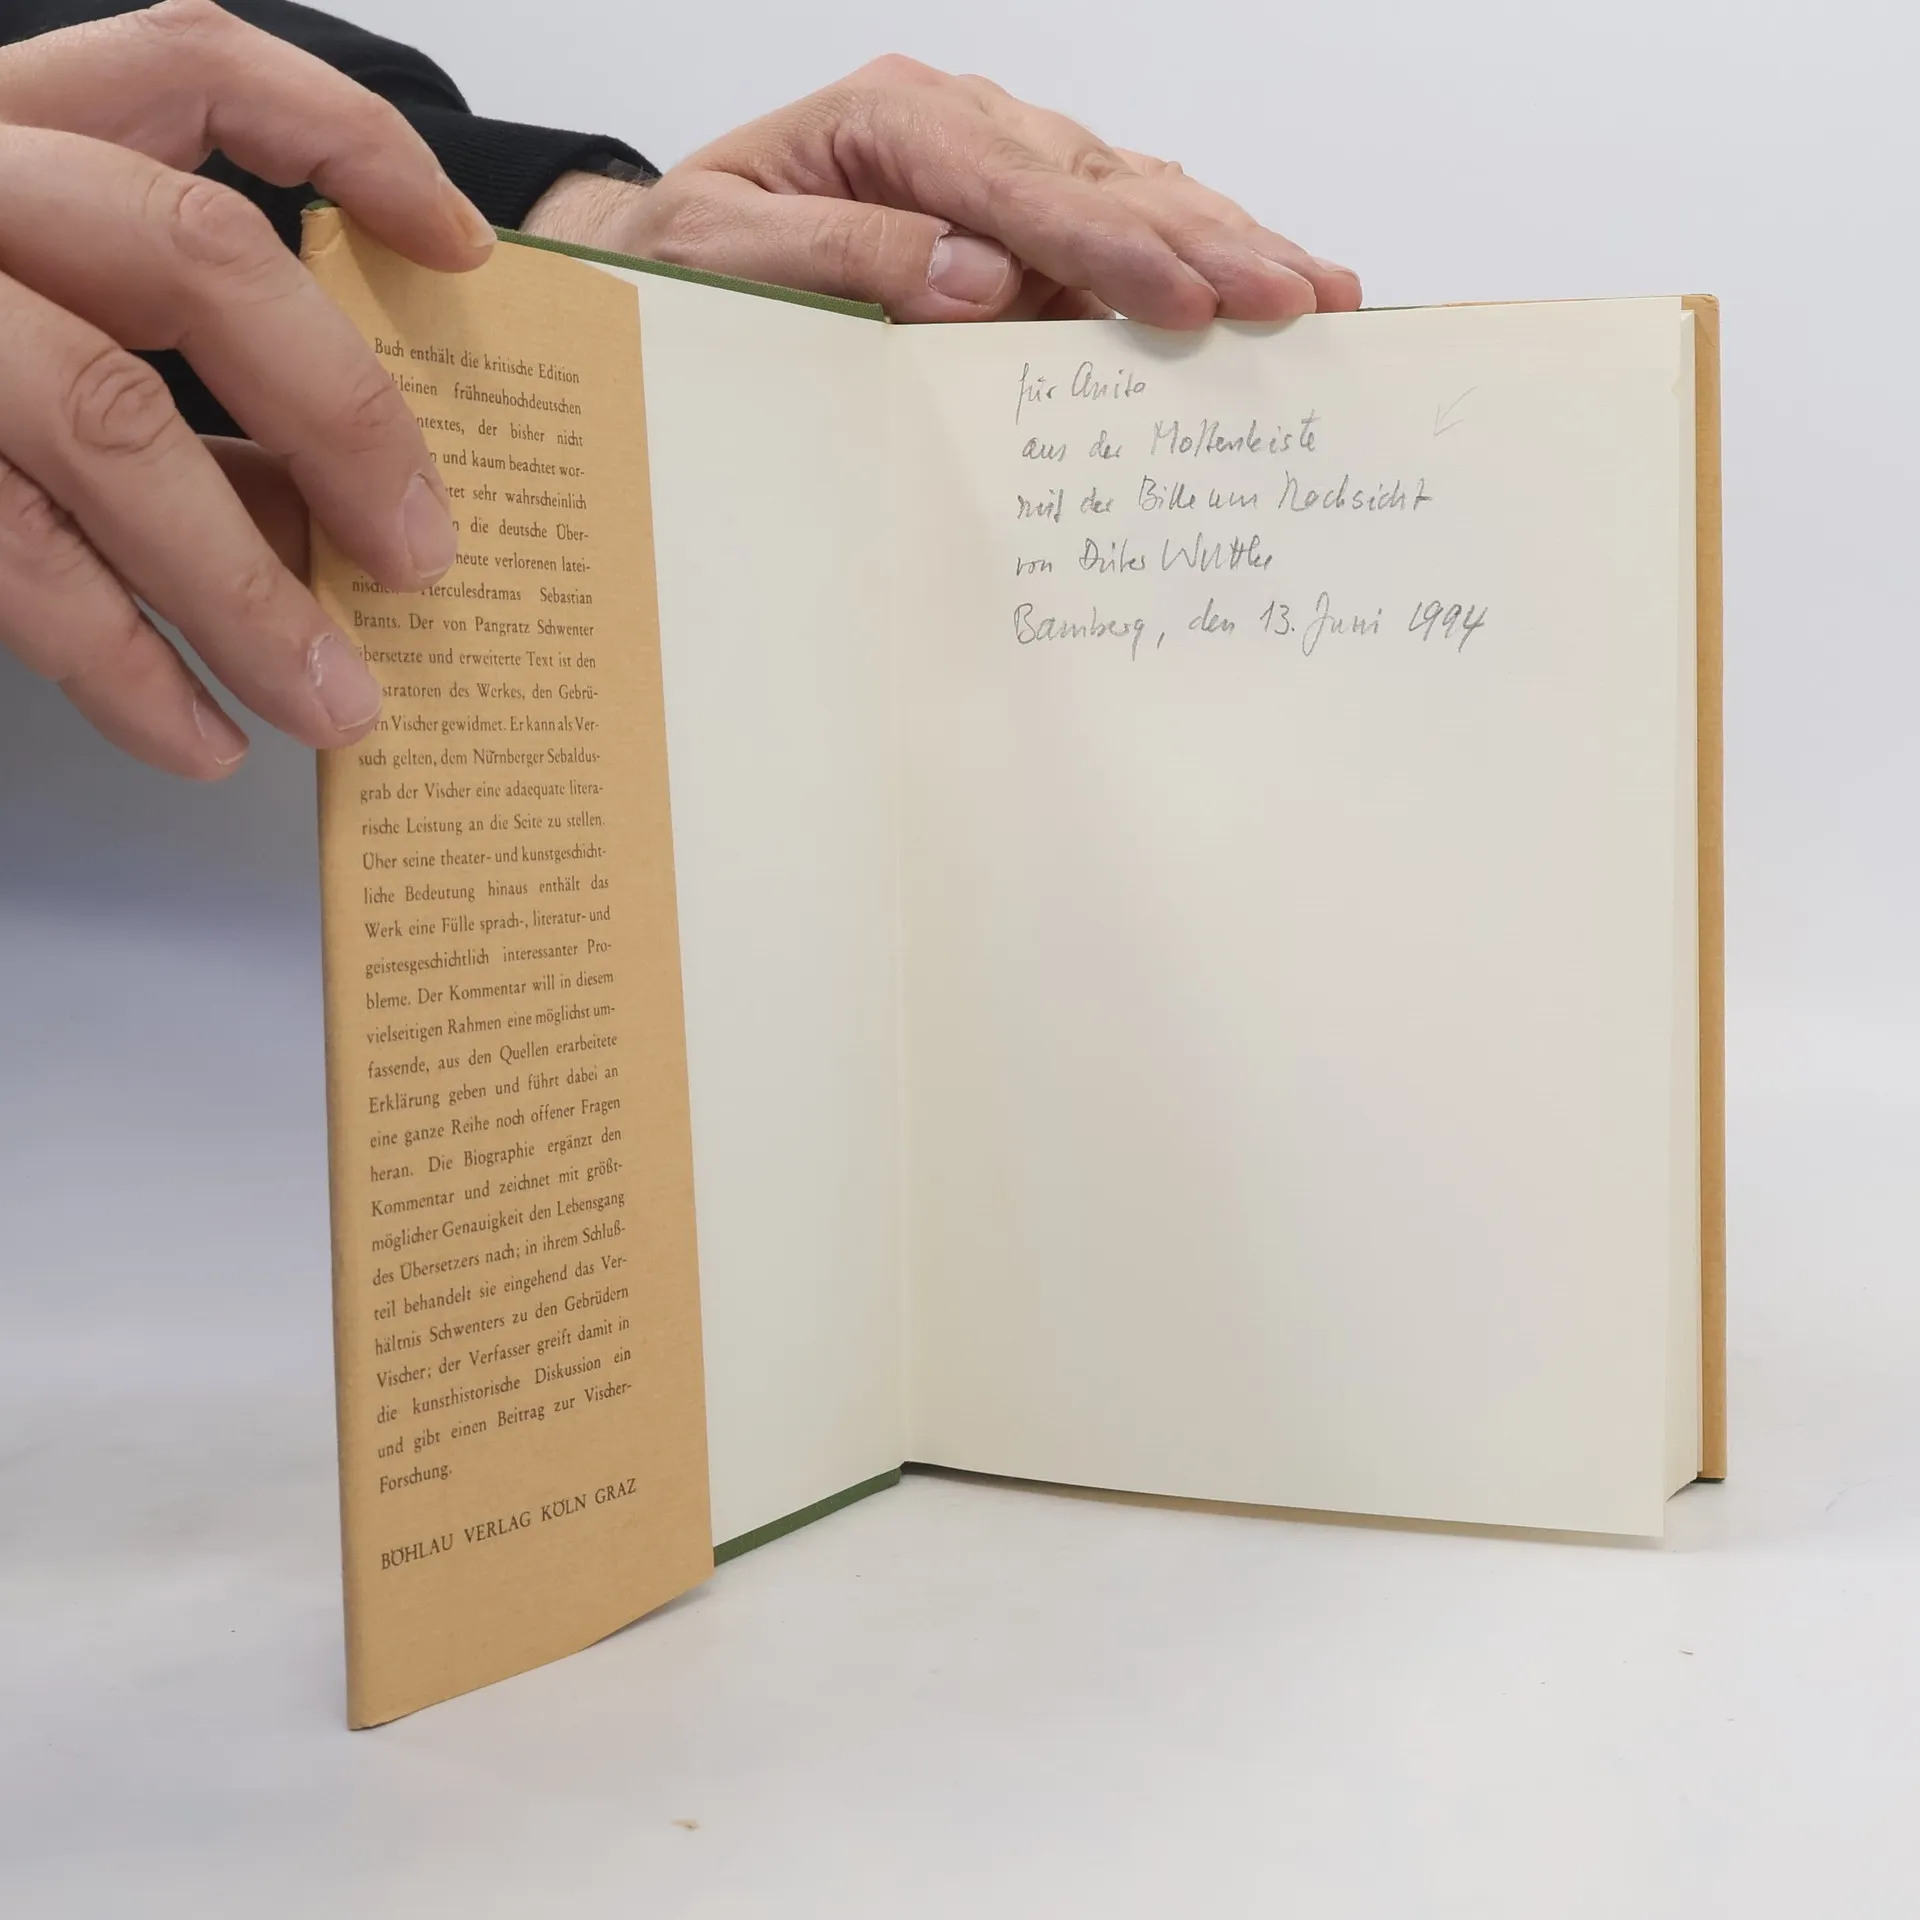 Buch enthält die kritische Edition
kleinen frühneuhochdeutschen
ntextes, der bisher nicht
n und kaum beachtet wor-
tet sehr wahrscheinlich
n die deutsche Über-
heute verlorenen latei-
nischen Herculesdramas Sebastian
Brants. Der von Pangratz Schwenter
übersetzte und erweiterte Text ist den
stratoren des Werkes, den Gebrü-
rn Vischer gewidmet. Er kann als Ver-
such gelten, dem Nürnberger Sebaldus-
grab der Vischer eine adaequate litera-
rische Leistung an die Seite zu stellen.
Über seine theater- und kunstgeschicht-
liche Bedeutung hinaus enthält das
Werk eine Fülle sprach-, literatur- und
geistesgeschichtlich interessanter Pro-
bleme. Der Kommentar will in diesem
vielseitigen Rahmen eine möglichst um-
fassende, aus den Quellen erarbeitete
Erklärung geben und führt dabei an
eine ganze Reihe noch offener Fragen
heran. Die Biographie ergänzt den
Kommentar und zeichnet mit größt-
möglicher Genauigkeit den Lebensgang
des Übersetzers nach; in ihrem Schluß-
teil behandelt sie eingehend das Ver-
hältnis Schwenters zu den Gebrüdern
Vischer; der Verfasser greift damit in
die kunsthistorische Diskussion ein
und gibt einen Beitrag zur Vischer-
Forschung.
BÖHLAU VERLAG KÖLN GRAZ
für Anita
aus der Mottenkiste
mit der Bitte um Nachsicht
von Dieter Wuttke
Bamberg, den 13. Juni 1994